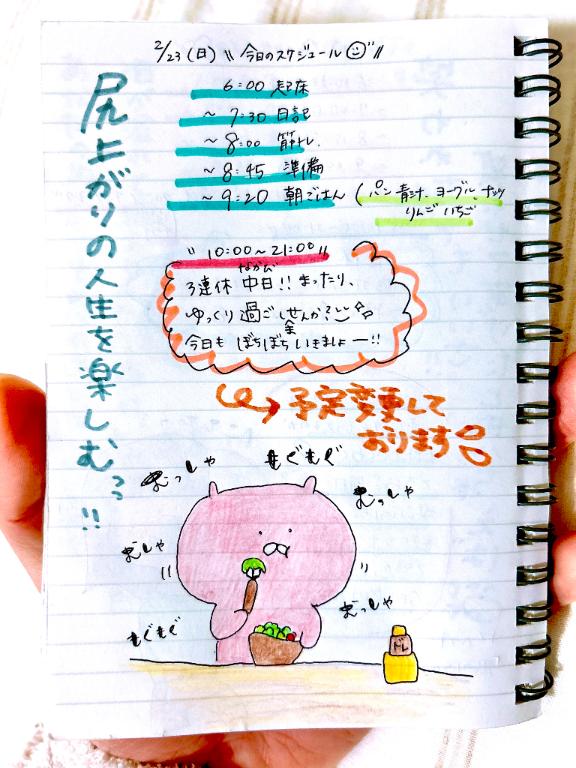 2/23(日) \\ 今日のスケジュール ☺ //
6:00 起床
～ 7:30 日記
～ 8:00 筋トレ
～ 8:45 準備
～ 9:20 朝ごはん (パン 青汁、ヨーグル、ナッツ
りんご いちご
尻上がりの人生を楽しむっ!!
" 10:00～21:00 "
なかび
3連休 中日!! まったり、
ゆっくり過ごしませんか?
今日も ぼちぼちいきましょー!!
予定変更して
おります
むっしゃ
もぐもぐ
むっしゃ
むしゃ
むっしゃ
もぐもぐ
ドレ